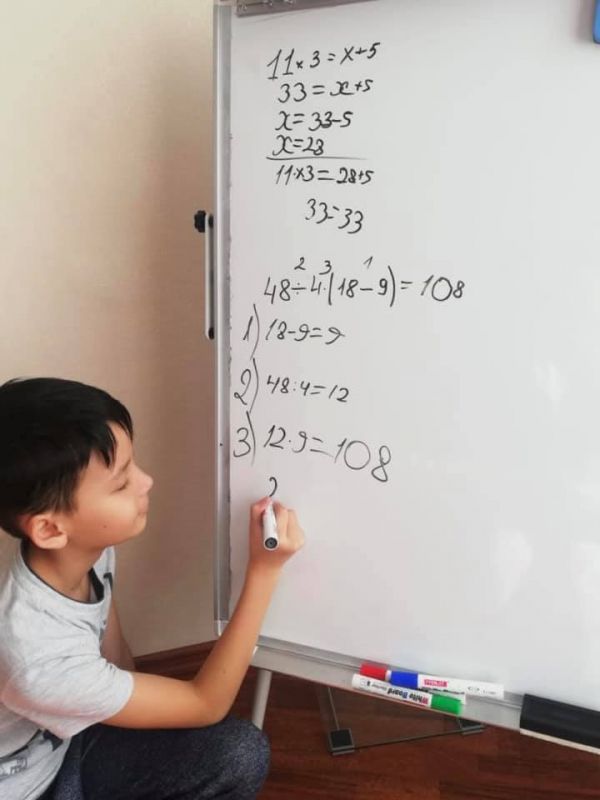 11×3=x+5
33=x+5
x=33-5
x=28
11×3=28+5
33=33
2 3 1
48÷4·(18-9)=108
1) 18-9=9
2) 48:4=12
3) 12·9=108
2
White Board